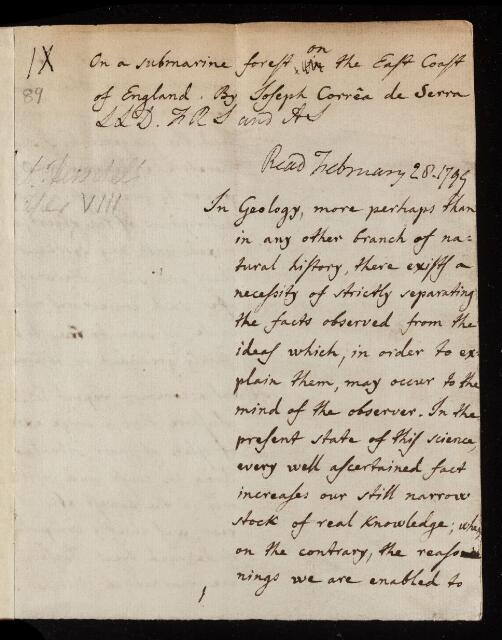 IX
89
On a submarine forest on the East Coast
of England. By Joseph Corrêa de Serra
LLD. FRS and AS
Read February 28. 1799
VIII
In Geology, more perhaps than
in any other branch of na=
tural history, there exists a
necessity of strictly separating
the facts observed from the
ideas which, in order to ex=
plain them, may occur to the
mind of the observer. In the
present state of this science,
every well ascertained fact
increases our still narrow
stock of real knowledge; when
on the contrary, the reaso
nings we are enabled to